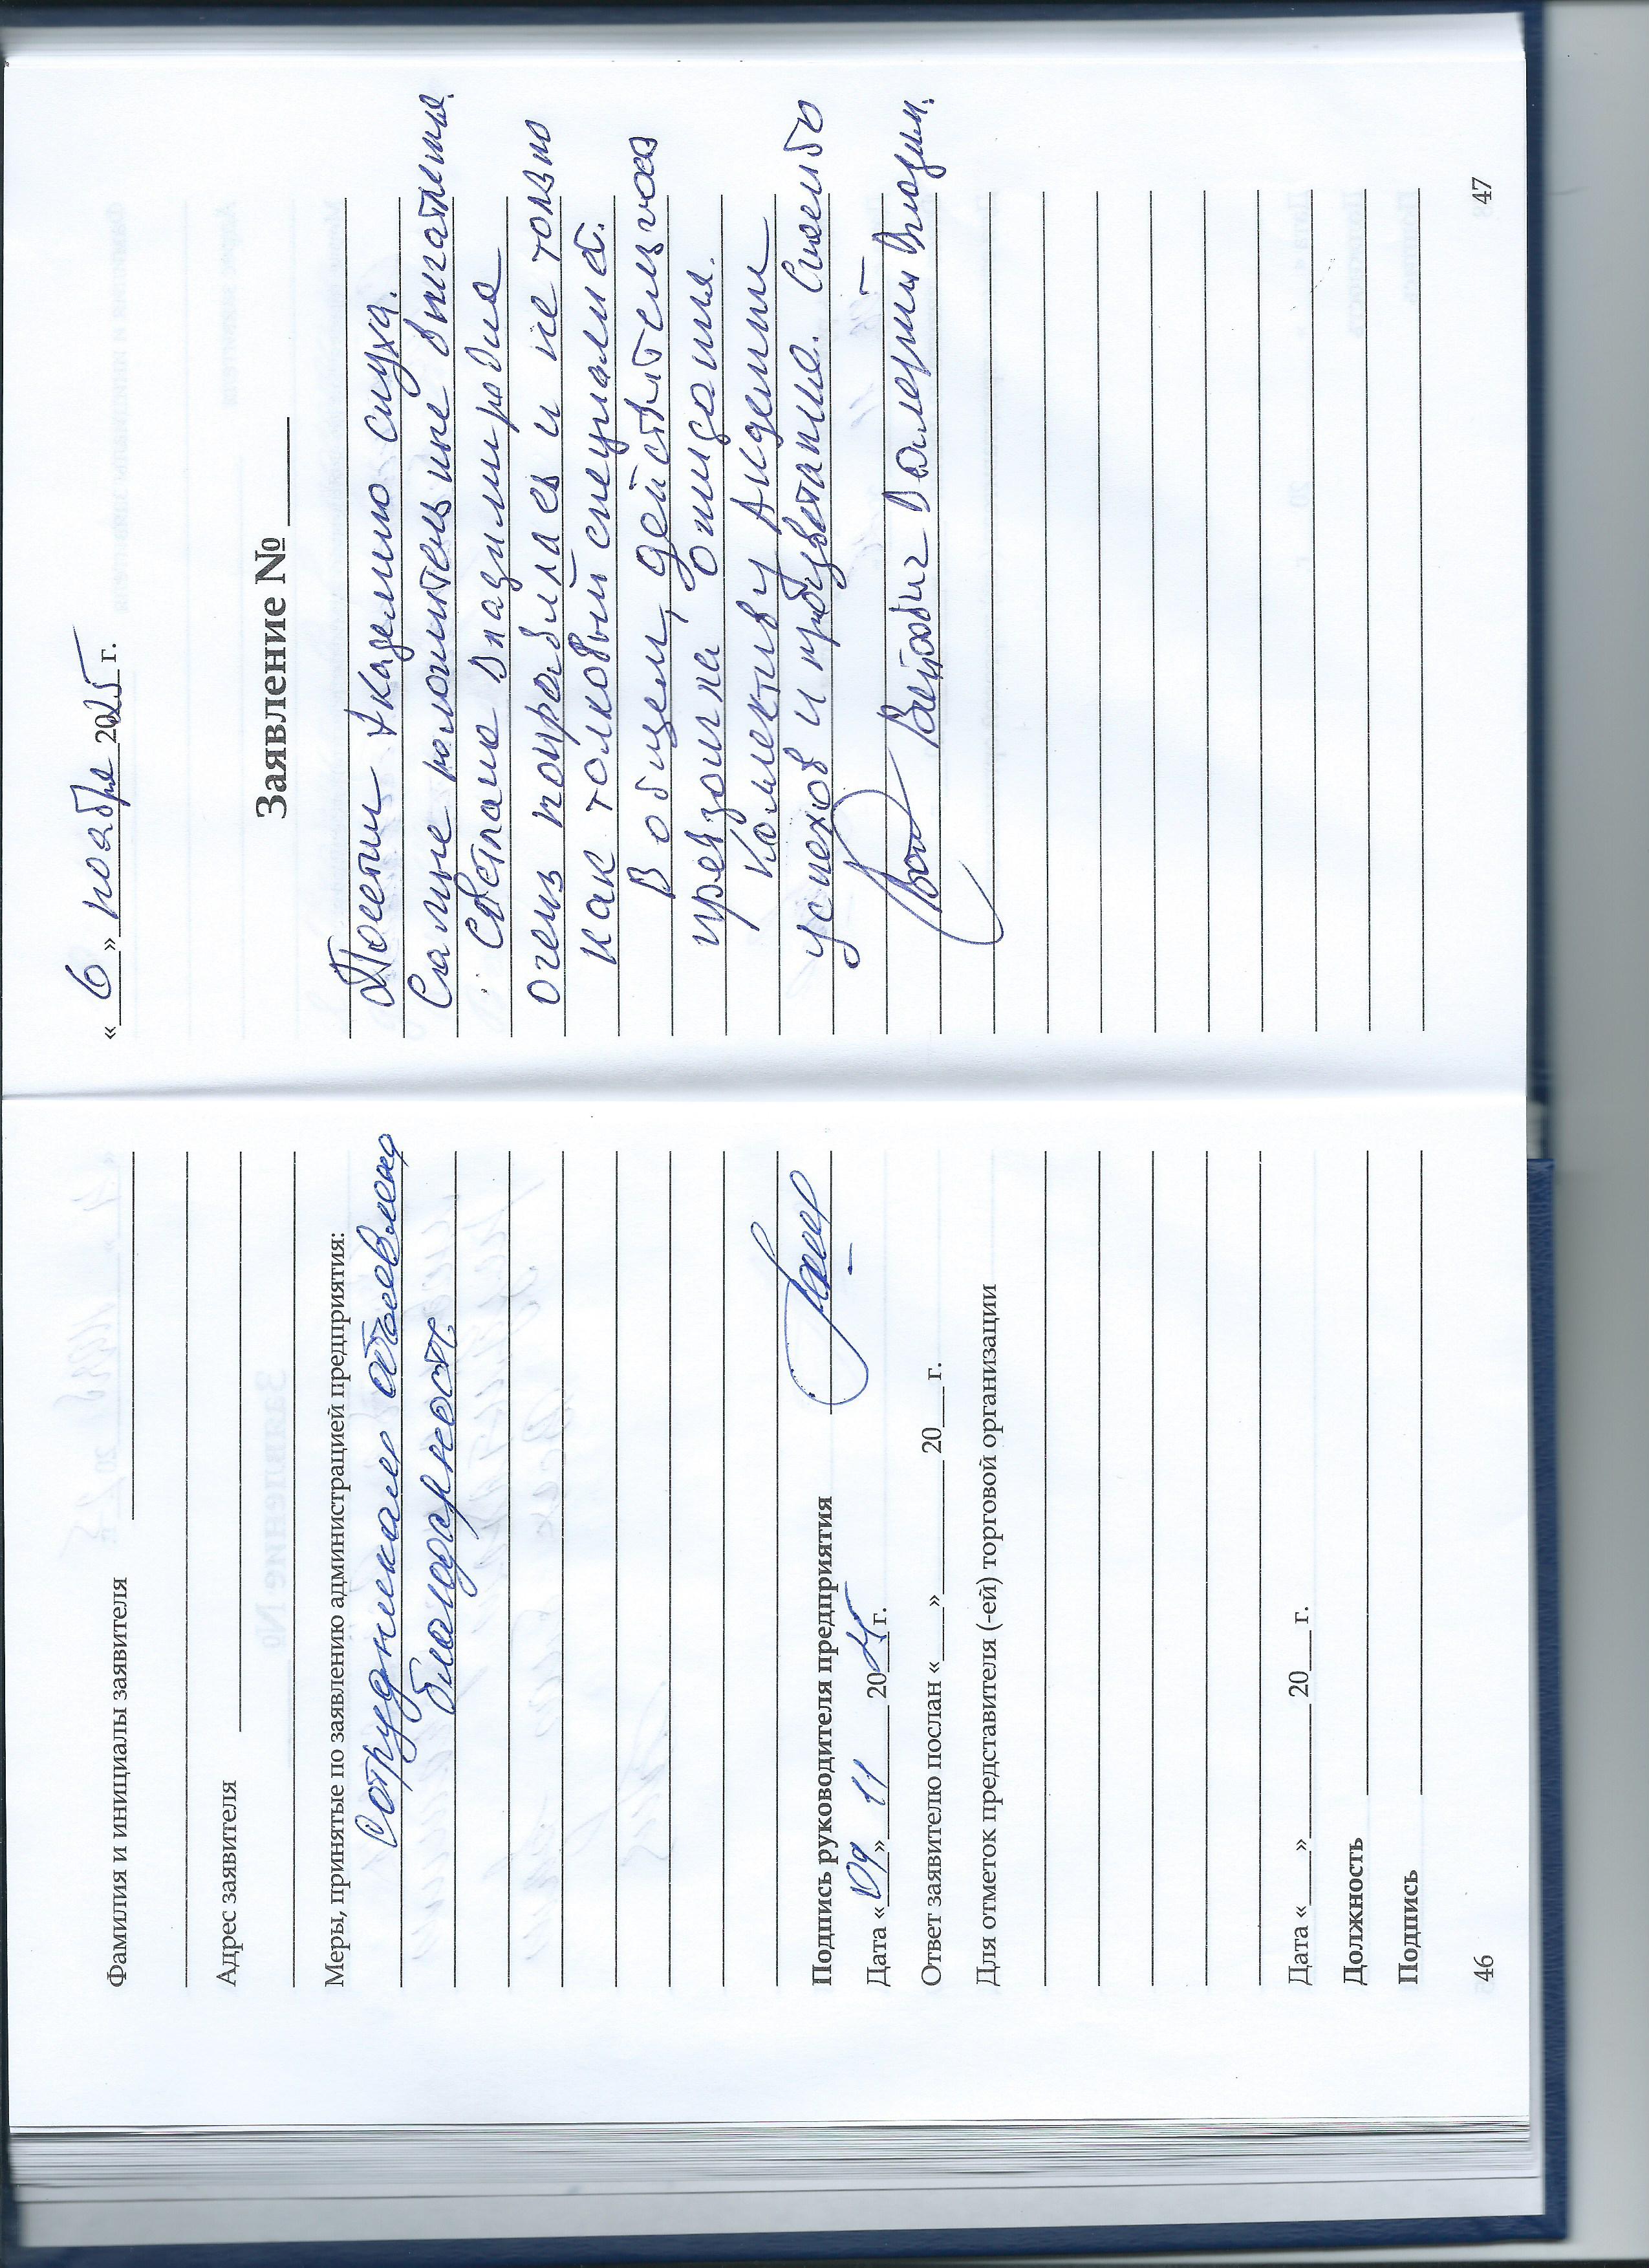 Фамилия и инициалы заявителя
Адрес заявителя
Меры, принятые по заявлению администрацией предприятия:
Сотрудникам объявлена
благодарность.
Подпись руководителя предприятия
Дата «09» 11 2025 г.
Ответ заявителю послан «___»________20___г.
Для отметок представителя (-ей) торговой организации
Дата «___»________20___г.
Должность
Подпись
46
«6» ноября 2025 г.
Заявление №____
Посетил Академию слуха.
Самые положительные впечатления.
Светлана Владимировна
очень понравилась и не только
как толковый специалист.
В общем, действительность
превзошла ожидания.
Коллективу Академии
успехов и процветания. Спасибо
Валерий Владим.
47